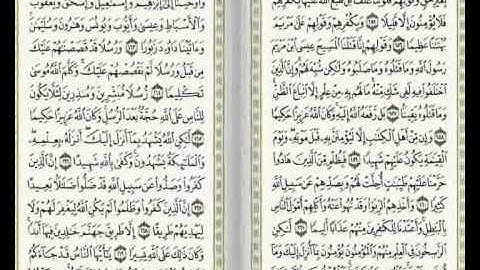 بِغَيْرِ حَقٍّ وَقَوْلِهِمْ قُلُوبُنَا غُلْفٌ بَلْ طَبَعَ اللَّهُ عَلَيْهَا بِكُفْرِهِمْ
فَلَا يُؤْمِنُونَ إِلَّا قَلِيلًا ١٥٥ وَبِكُفْرِهِمْ وَقَوْلِهِمْ عَلَىٰ مَرْيَمَ
بُهْتَانًا عَظِيمًا ١٥٦ وَقَوْلِهِمْ إِنَّا قَتَلْنَا الْمَسِيحَ عِيسَى ابْنَ مَرْيَمَ
رَسُولَ اللَّهِ وَمَا قَتَلُوهُ وَمَا صَلَبُوهُ وَلَٰكِن شُبِّهَ لَهُمْ وَإِنَّ الَّذِينَ
اخْتَلَفُوا فِيهِ لَفِي شَكٍّ مِّنْهُ مَا لَهُم بِهِ مِنْ عِلْمٍ إِلَّا اتِّبَاعَ الظَّنِّ
وَمَا قَتَلُوهُ يَقِينًا ١٥٧ بَل رَّفَعَهُ اللَّهُ إِلَيْهِ وَكَانَ اللَّهُ عَزِيزًا حَكِيمًا
١٥٨ وَإِن مِّنْ أَهْلِ الْكِتَابِ إِلَّا لَيُؤْمِنَنَّ بِهِ قَبْلَ مَوْتِهِ وَيَوْمَ
الْقِيَامَةِ يَكُونُ عَلَيْهِمْ شَهِيدًا ١٥٩ فَبِظُلْمٍ مِّنَ الَّذِينَ هَادُوا
حَرَّمْنَا عَلَيْهِمْ طَيِّبَاتٍ أُحِلَّتْ لَهُمْ وَبِصَدِّهِمْ عَن سَبِيلِ اللَّهِ
كَثِيرًا ١٦٠ وَأَخْذِهِمُ الرِّبَا وَقَدْ نُهُوا عَنْهُ وَأَكْلِهِمْ أَمْوَالَ النَّاسِ
بِالْبَاطِلِ وَأَعْتَدْنَا لِلْكَافِرِينَ مِنْهُمْ عَذَابًا أَلِيمًا ١٦١ لَّٰكِنِ
الرَّاسِخُونَ فِي الْعِلْمِ مِنْهُمْ وَالْمُؤْمِنُونَ يُؤْمِنُونَ بِمَا أُنزِلَ إِلَيْكَ وَمَا
أَوْحَيْنَا إِلَىٰ إِبْرَاهِيمَ وَإِسْمَاعِيلَ وَإِسْحَاقَ وَيَعْقُوبَ
وَالْأَسْبَاطِ وَعِيسَىٰ وَأَيُّوبَ وَيُونُسَ وَهَارُونَ وَسُلَيْمَانَ
وَآتَيْنَا دَاوُودَ زَبُورًا ١٦٣ وَرُسُلًا قَدْ قَصَصْنَاهُمْ عَلَيْكَ
مِن قَبْلُ وَرُسُلًا لَّمْ نَقْصُصْهُمْ عَلَيْكَ وَكَلَّمَ اللَّهُ مُوسَىٰ
تَكْلِيمًا ١٦٤ رُّسُلًا مُّبَشِّرِينَ وَمُنذِرِينَ لِئَلَّا يَكُونَ
لِلنَّاسِ عَلَى اللَّهِ حُجَّةٌ بَعْدَ الرُّسُلِ وَكَانَ اللَّهُ عَزِيزًا حَكِيمًا
١٦٥ لَّٰكِنِ اللَّهُ يَشْهَدُ بِمَا أَنزَلَ إِلَيْكَ أَنزَلَهُ بِعِلْمِهِ
وَالْمَلَائِكَةُ يَشْهَدُونَ وَكَفَىٰ بِاللَّهِ شَهِيدًا ١٦٦ إِنَّ الَّذِينَ
كَفَرُوا وَصَدُّوا عَن سَبِيلِ اللَّهِ قَدْ ضَلُّوا ضَلَالًا بَعِيدًا
١٦٧ إِنَّ الَّذِينَ كَفَرُوا وَظَلَمُوا لَمْ يَكُنِ اللَّهُ لِيَغْفِرَ لَهُمْ وَلَا
لِيَهْدِيَهُمْ طَرِيقًا ١٦٨ إِلَّا طَرِيقَ جَهَنَّمَ خَالِدِينَ فِيهَا أَبَدًا
وَكَانَ ذَٰلِكَ عَلَى اللَّهِ يَسِيرًا ١٦٩ يَا أَيُّهَا النَّاسُ قَدْ جَاءَكُمُ